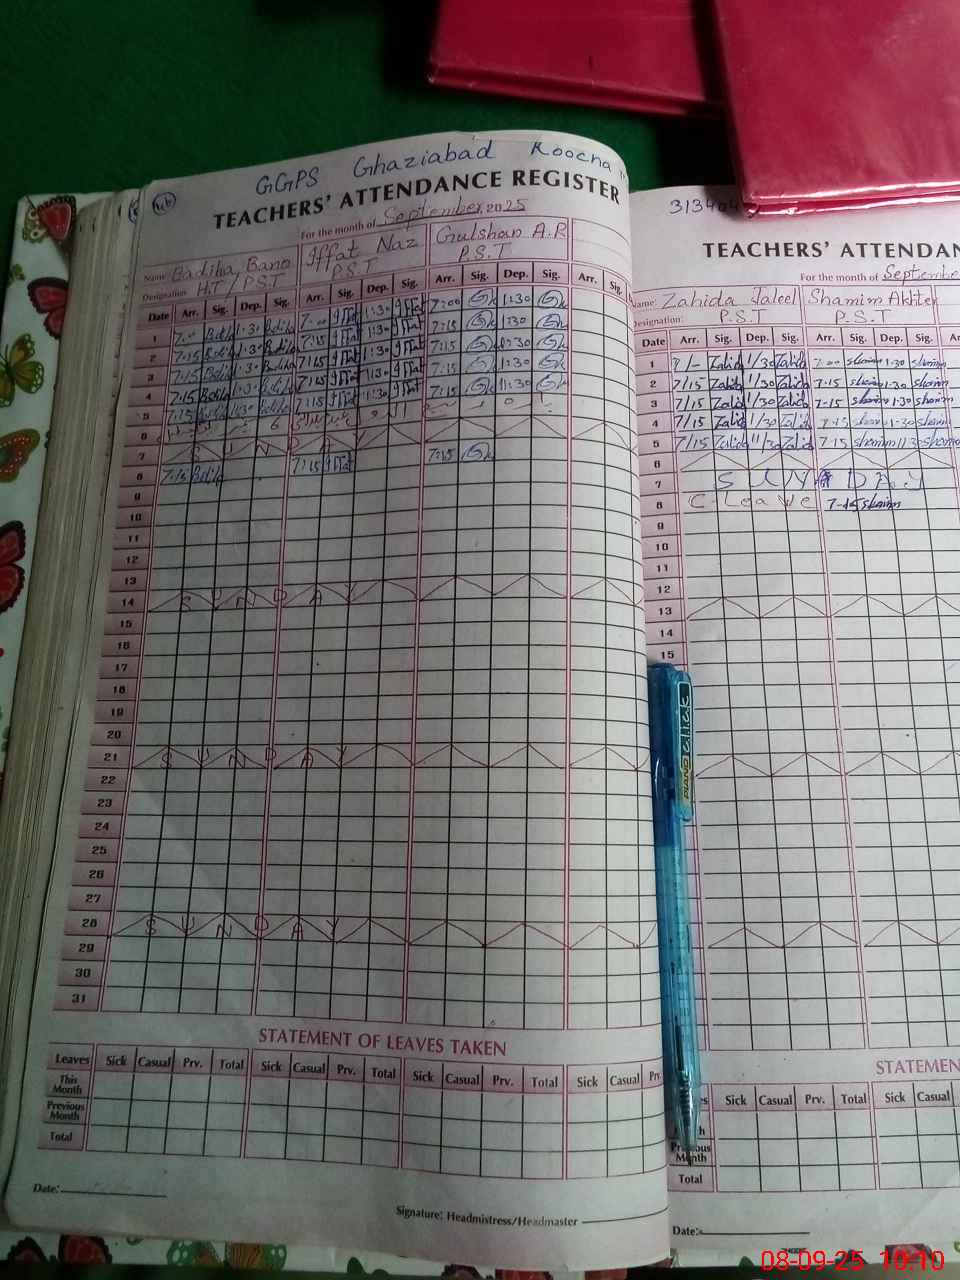 GGPS Ghaziabad Koocha
TEACHERS' ATTENDANCE REGISTER
For the month of September 2025
Name: Badiha Bano Iffat Naz Gulshan A.R
Designation H.T / P.S.T P.S.T P.S.T
Date Arr. Sig. Dep. Sig. Arr. Sig. Dep. Sig. Arr. Sig. Dep. Sig. Arr. Sig.
1 7:00 1:30 7:00 Iffat 1:30 Iffat 7:00 1:30
2 7:15 1:30 7:15 Iffat 1:30 Iffat 7:15 1:30
3 7:15 1:30 7:15 Iffat 1:30 Iffat 7:15 1:30
4 7:15 1:30 7:15 Iffat 1:30 Iffat 7:15 1:30
5 7:15 1:30 7:15 Iffat 1:30 Iffat 7:15 1:30
6
7 S U N
8 7:15 7:15 Iffat 7:15
9
10
11
12
13
14 S U N D A Y
15
16
17
18
19
20
21 S U N D A Y
22
23
24
25
26
27
28 S U N D A Y
29
30
31
STATEMENT OF LEAVES TAKEN
Leaves Sick Casual Prv. Total Sick Casual Prv. Total Sick Casual Prv. Total Sick Casual Prv
This Month
Previous Month
Total
Date:
Signature: Headmistress/Headmaster
TEACHERS' ATTENDAN
For the month of Septembe
Name: Zahida Jaleel Shamim Akhter
Designation: P.S.T P.S.T
Date Arr. Sig. Dep. Sig. Arr. Sig. Dep. Sig. A
1 7/- Zahida 1/30 Zahida 7:00 shamim 1:30 shamim
2 7/15 Zahida 1/30 Zahida 7-15 shamim 1:30 shamim
3 7/15 Zahida 1/30 Zahida 7-15 shamim 1:30 shamim
4 7/15 Zahida 1/30 Zahida 7-15 shamim 1:30 shamim
5 7/15 Zahida 1/30 Zahida 7-15 shamim 1:30 shamim
6
7 S U N D A Y
8 C-Leave 7-15 shamim
9
10
11
12
13
14
15
PIANO CLICK
STATEMEN
es Sick Casual Prv. Total Sick Casual
Previous Month
Total
Date:
08-09-25 10:10